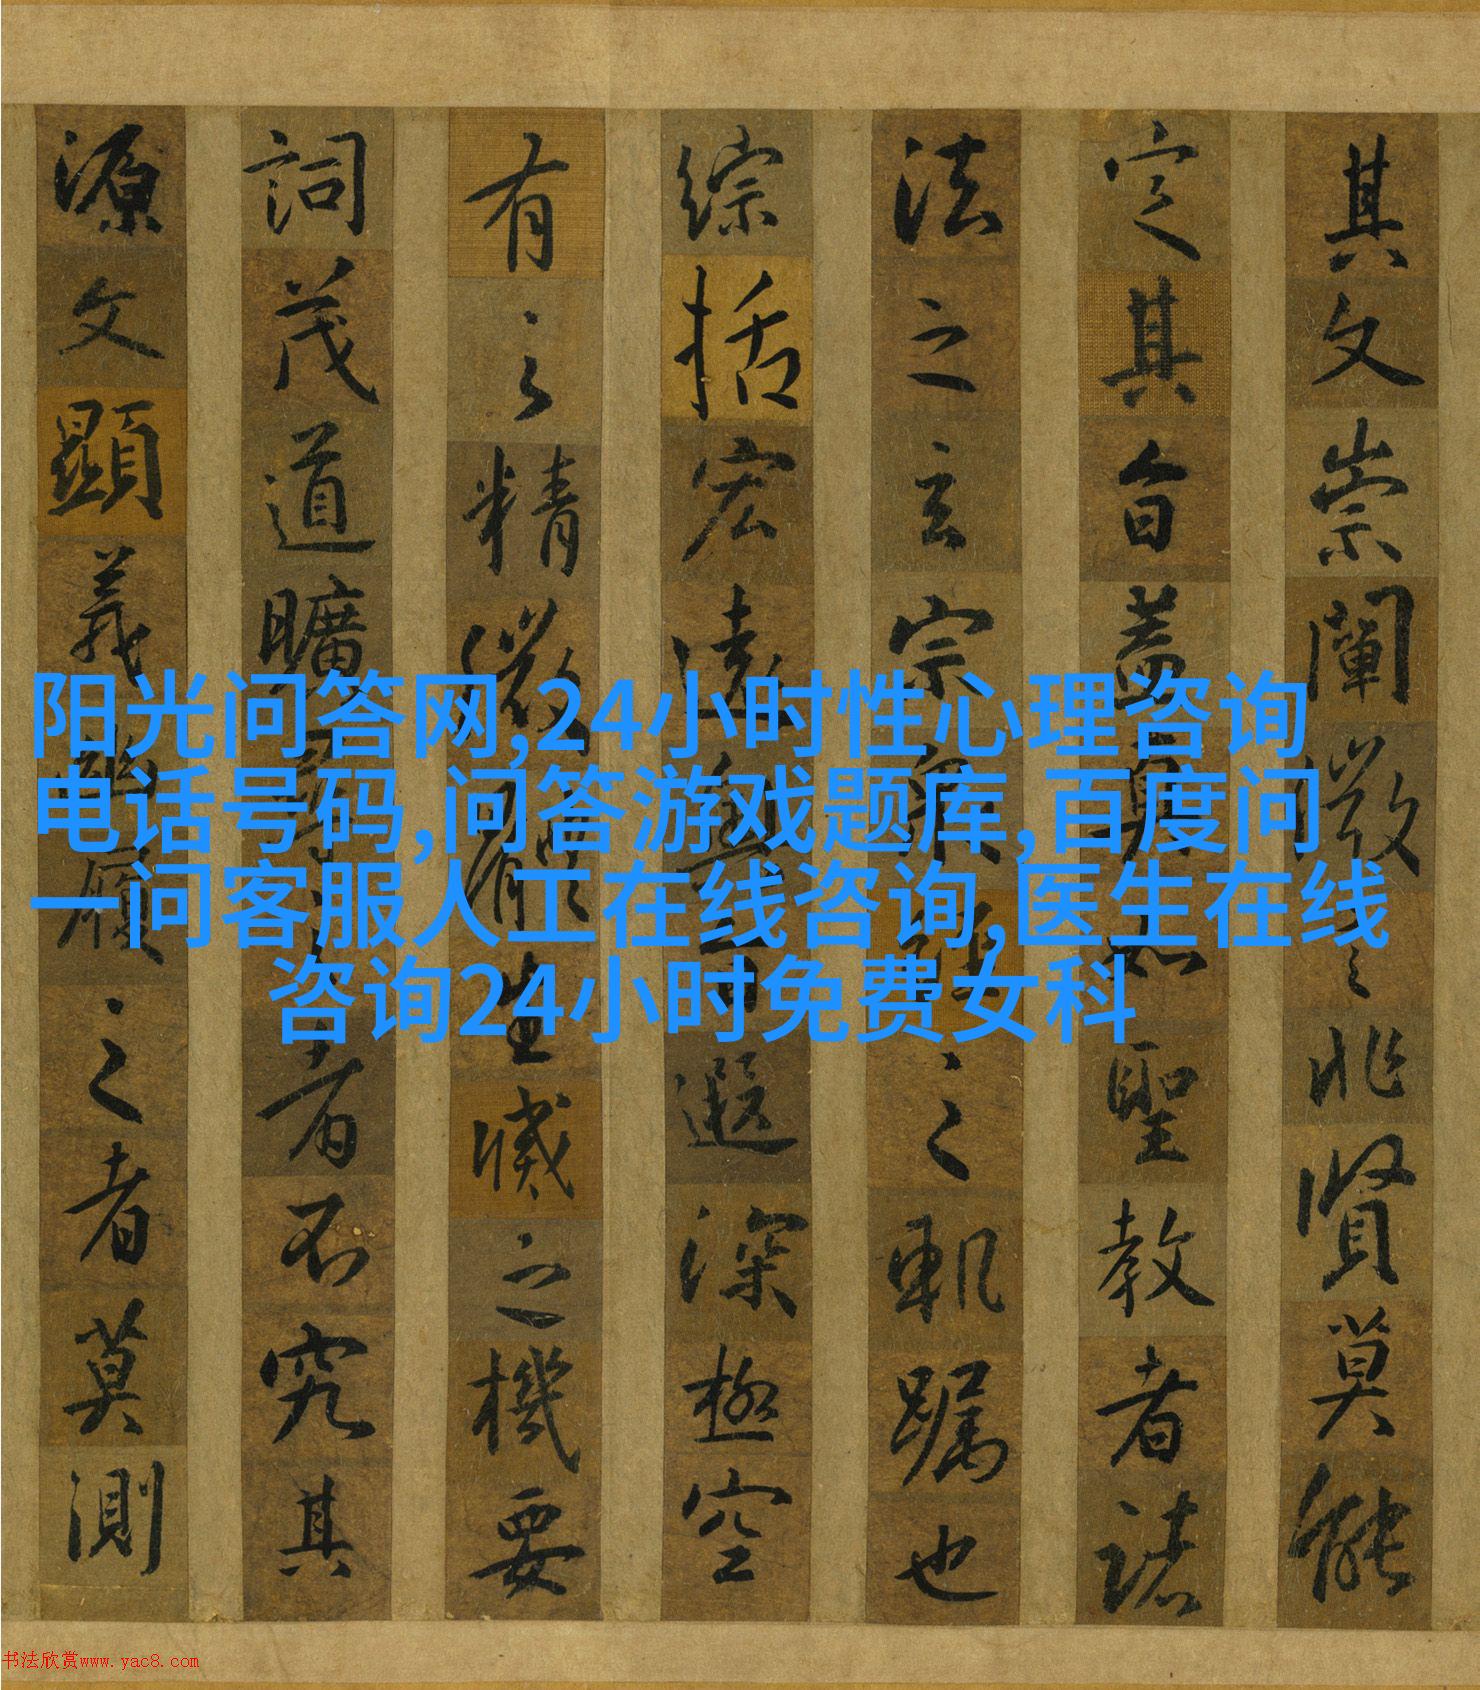 其文崇闡微言非賢莫能
定其旨蓋真如聖教者諸
法之玄宗衆經之軌躅也
綜括宏遠奧旨遐深極空
有之精微體生滅之機要
詞茂道曠尋之者不究其
源文顯義幽履之者莫測
阳光问答网,24小时性心理咨询
电话号码,问答游戏题库,百度问
一问客服人工在线咨询,医生在线
咨询24小时免费女科
书法欣赏www.yac8.com